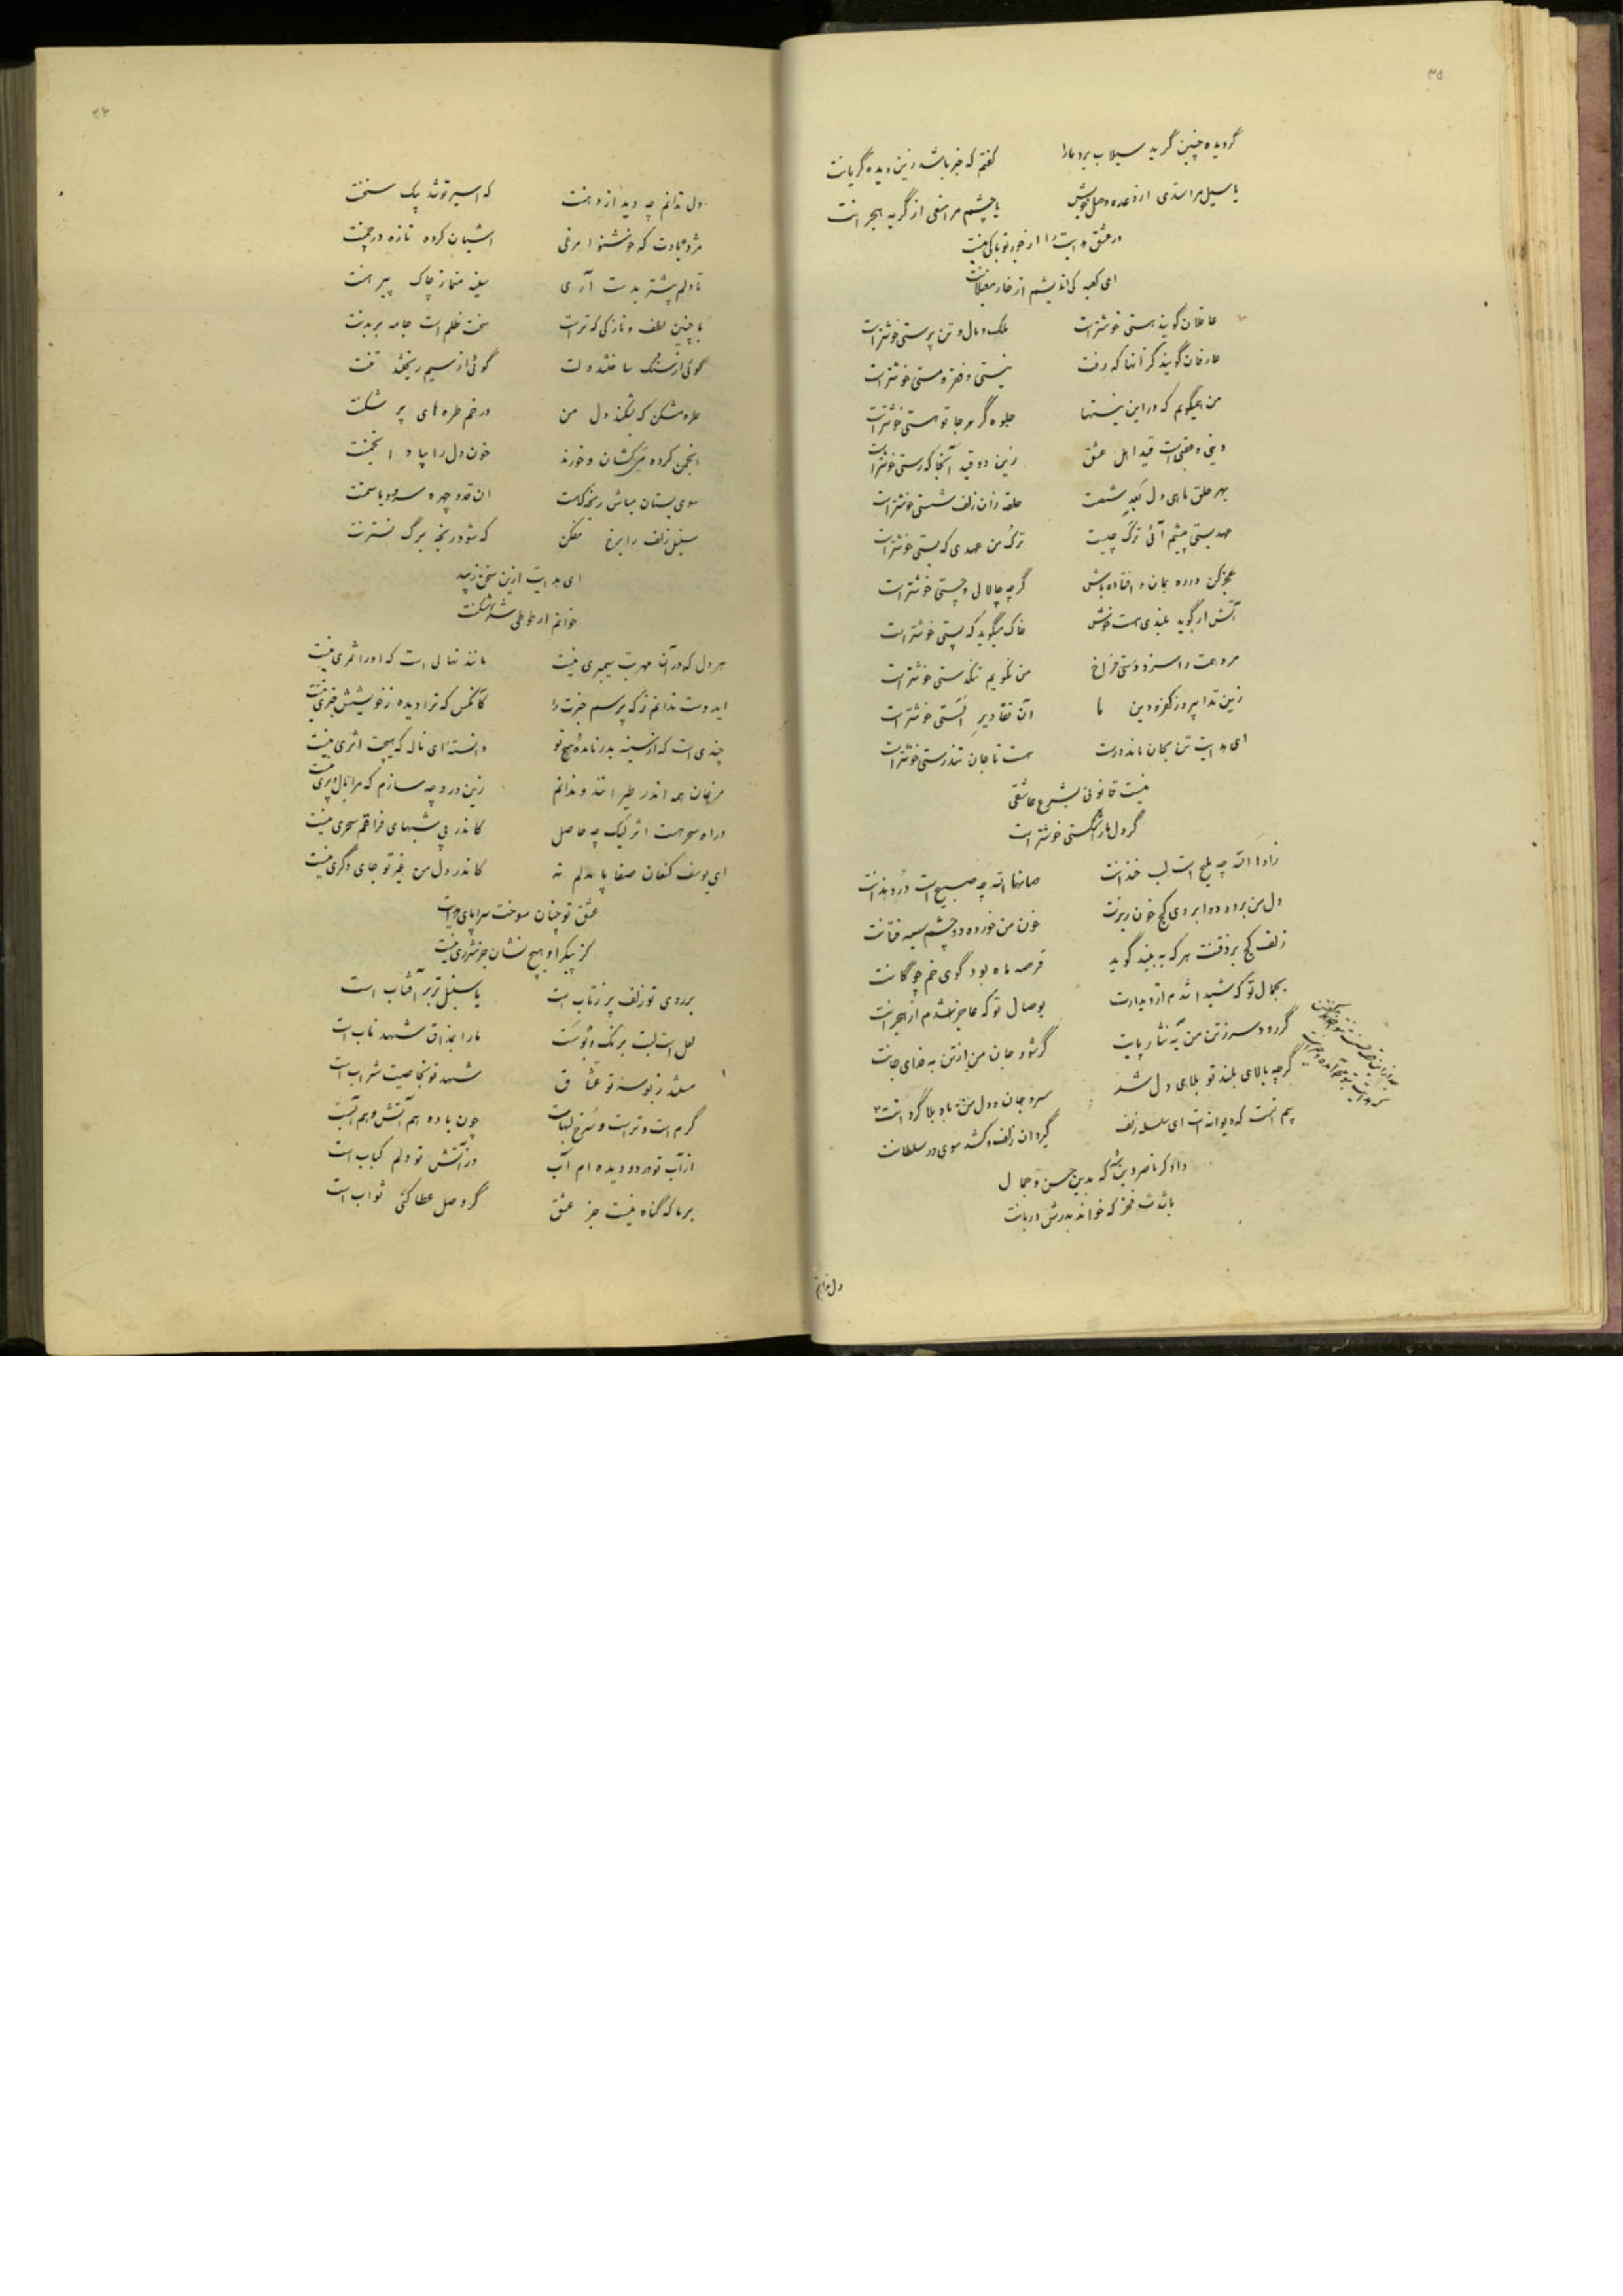 ۳۵
گر دیده چنین گرید سیلاب برد ما را گفتم که خبر باشد زین دیده گریانت
یا سیل مرا سدی از وعده وصل خویش یا چشم مرا منعی از گریه هجرانت
در عشق هدایت را از جور تو باکی نیست
ای کعبه کی اندیشم از خار مغیلانت
عاقلان گویند هستی خوشتر است ملک و مال و تن پرستی خوشتر است
عارفان گویند کز آنها که رفت نیستی و فقر و مستی خوشتر است
من همیگویم که در این نیستیها جلوه گر هر جا تو هستی خوشتر است
دینی و عقبی است قید اهل عشق زین دو قید آنجا که رستی خوشتر است
بهر حلق ماهی دل بعد شصت حلقه زان زلف شستی خوشتر است
عهد بستی چشم آئی ترک چیست ترک من عهدی که بستی خوشتر است
عجز کن در ره بمان و افتاده باش گرچه چالاکی و چستی خوشتر است
آتش ار گوید بلندی هست خوش خاک میگوید که پستی خوشتر است
مرد همت را سزد دستی فراخ من نگویم تنگدستی خوشتر است
زین تدابیر و ز کفر و دین ما آن تقادیر الستی خوشتر است
ای هدایت تن بجان ماند درست هست تا جان تندرستی خوشتر است
نیست قانونی بشرع عاشقی
گر دل ما را شکستی خوشتر است
زادها الله چه ملیح است لب خندانت صانها الله چه صبیح است در دندانت
دل من برده دو ابروی کج خون ریزت خون من خورده دو چشم سیه فتانت
زلف کج بر ذقنت هر که ببیند گوید قرصه ماه بود گوی خم چوگانت
بجمال تو که شیدا شدم از دیدارت بوصال تو که عاجز شدم از هجرانت
گر رود سر ز تن من به نثار پایت گر شود جان من از تن به فدای جانت
گرچه بالای بلند تو بلای دل شد سر و جان و دل من باد بلا گردانت
بیم آنست که دیوانه‌ات ای سلسله زلف گیرد آن زلف و کشد سوی در سلطانت
دادگر ناصر دین شه که بدین حسن و جمال
باشدت فخر که خواند بدرش دربانت
دل ندانم
۳۶
دل ندانم چه دید از دهنت که اسیر تو شد بیک سخنت
مژده بادت که خوشنوا مرغی آشیان کرده تازه در چمنت
تا دلم پیشتر بدست آری سینه منما ز چاک پیرهنت
با چنین لطف و نازکی که تراست سخت ظلم است جامه بر بدنت
گوئی از سنگ ساختند دلت گوئی از سیم ریختند تنت
طره مشکن که بشکند دل من در خم طره های پر شکنت
انجمن کرده سرکشان و خورند خون دل را بیاد انجمنت
سوی بستان مباش رنجه که هست آن قد و چهره سرو و یاسمنت
سنبل زلف را برخ مفکن که شود رنجه برگ نسترنت
ای هدایت ازین سخن زیبد
خوانم ار طوطی شکر شکنت
هر دل که در آن مهر بت سیمبری نیست مانند نهالی است که او را ثمری نیست
ایدوست ندانم ز که پرسم خبرت را کآنکس که ترا دیده ز خویشش خبری نیست
چندی است که از سینه بدر نامده هیچ تو دانسته‌ای ناله که هیچت اثری نیست
مرغان همه اندر طیرانند و ندانم زین درد چه سازم که مرا بال و پری نیست
در آه سحر هست اثر لیک چه حاصل کاندر پی شبهای فراقم سحری نیست
ای یوسف کنعان صفا پا بدلم نه کاندر دل من غیر تو جای دگری نیست
عشق تو چنان سوخت سراپای هدایت
کز پیکر او هیچ نشان جز شرری نیست
بر روی تو زلف پر ز تاب است یا سنبل تر بر آفتاب است
لعل است لبت برنگ و بوست ما را بمذاق شهد ناب است
مستند ز بوسه تو عشاق شهد تو بخاصیت شراب است
گرم است و تر است و سرخ لبهات چون باده هم آتش و هم آبست
از آب تو در دو دیده‌ام آب وز آتش تو دلم کباب است
بر ما که گناه نیست جز عشق گر وصل عطا کنی ثواب است